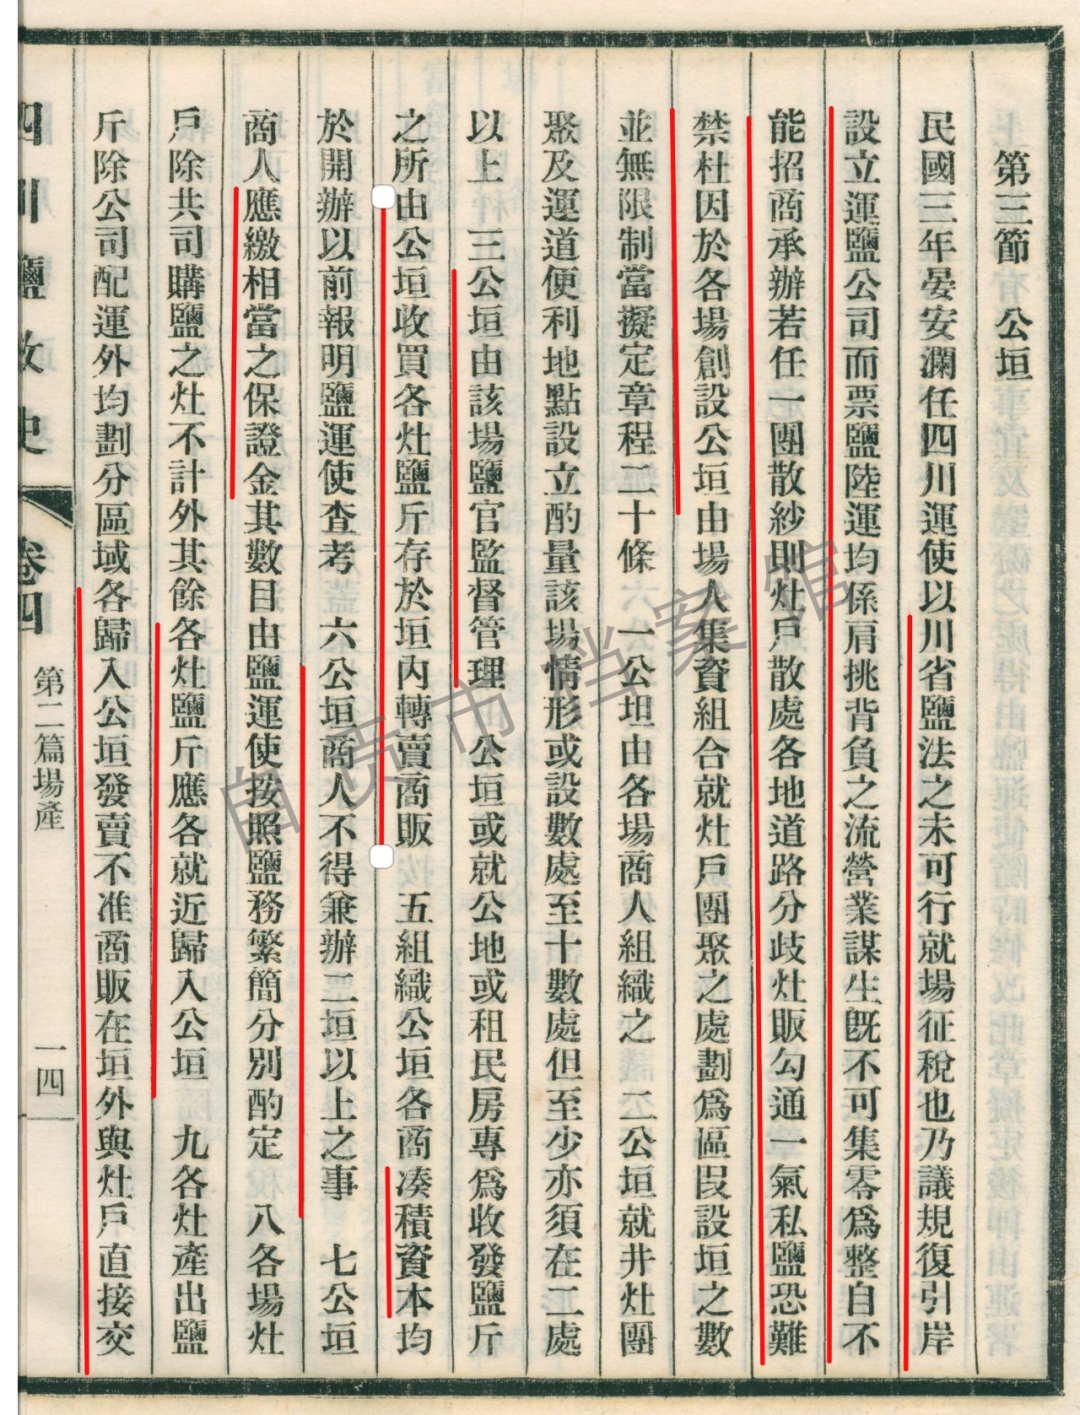 第三節　公垣
民國三年晏安瀾任四川運使以川省鹽法之未可行就場征稅也乃議規復引岸
設立運鹽公司而票鹽陸運均係肩挑背負之流營業謀生旣不可集零爲整自不
能招商承辦若任一團散紗則灶戶散處各地道路分歧灶販勾通一氣私鹽恐難
禁杜因於各場創設公垣由場人集資組合就灶戶團聚之處劃爲區段設垣之數
並無限制當擬定章程二十條　一公坦由各場商人組織之　二公垣就井灶團
聚及運道便利地點設立酌量該場情形或設數處至十數處但至少亦須在二處
以上　三公垣由該場鹽官監督管理　公垣或就公地或租民房專爲收發鹽斤
之所由公垣收買各灶鹽斤存於垣內轉賣商販　五組織公垣各商凑積資本均
於開辦以前報明鹽運使查考　六公垣商人不得兼辦二垣以上之事　七公垣
商人應繳相當之保證金其數目由鹽運使按照鹽務繁簡分別酌定　八各場灶
戶除共司購鹽之灶不計外其餘各灶鹽斤應各就近歸入公垣　九各灶產出鹽
斤除公司配運外均劃分區域各歸入公垣發賣不准商販在垣外與灶戶直接交
四川鹽政史　卷四　第二篇場產　一四
自贡市档案馆